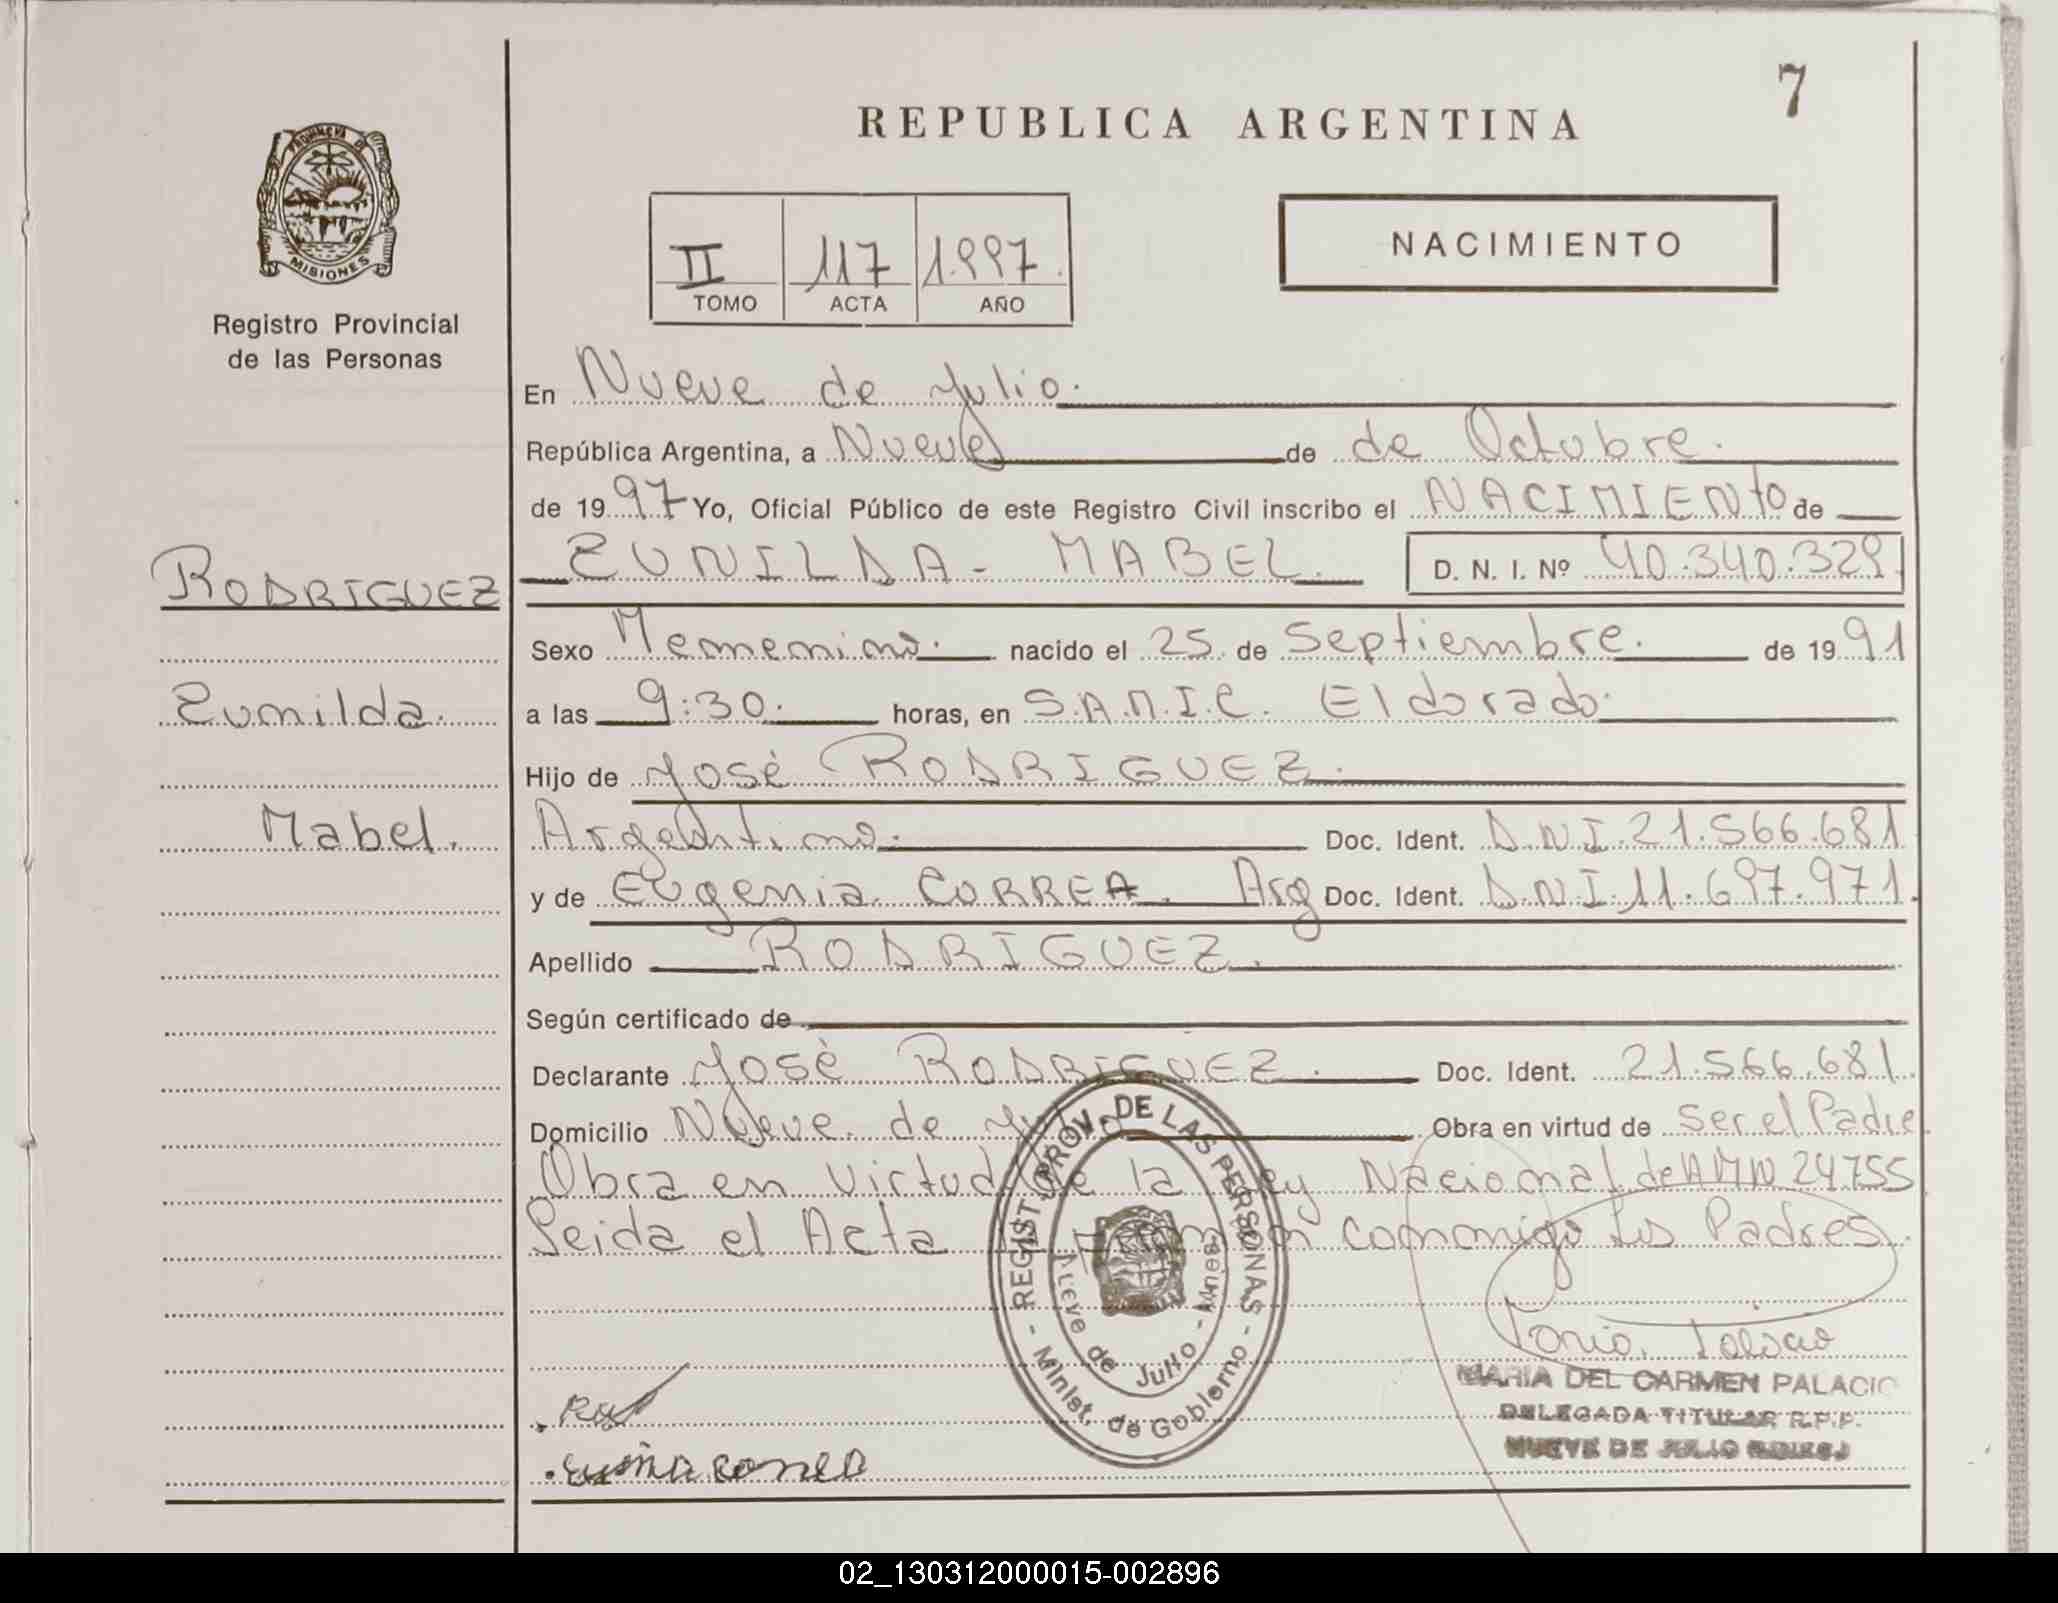 7
REPUBLICA ARGENTINA
PROVINCIA DE
MISIONES
Registro Provincial
de las Personas
II 117 1.997.
TOMO ACTA AÑO
NACIMIENTO
En Nueve de Julio.
República Argentina, a Nueve de de Octubre.
de 1997 Yo, Oficial Público de este Registro Civil inscribo el NACIMIENTO de
RODRIGUEZ
Zunilda
Mabel.
ZUNILDA - MABEL. D. N. I. Nº 40.340.329.
Sexo nacido el 25 de Septiembre. de 1991
a las 9:30. horas, en S.A.M.I.C. Eldorado.
Hijo de José RODRIGUEZ.
Argentino. Doc. Ident. D.N.I. 21.566.681
y de Eugenia CORREA. Arg Doc. Ident. D.N.I. 11.697.971.
Apellido RODRIGUEZ.
Según certificado de
Declarante José RODRIGUEZ. Doc. Ident. 21.566.681.
Domicilio Nueve de Obra en virtud de Ser el Padre
Obra en virtud de la Ley Nacional de 24755
Leida el Acta conmigo los Padres.
REGIST. PROV. DE LAS PERSONAS - Minist. de Gobierno -
Nueve de Julio - Mnes.
MARIA DEL CARMEN PALACIO
DELEGADA TITULAR R.P.P.
NUEVE DE JULIO
02_130312000015-002896